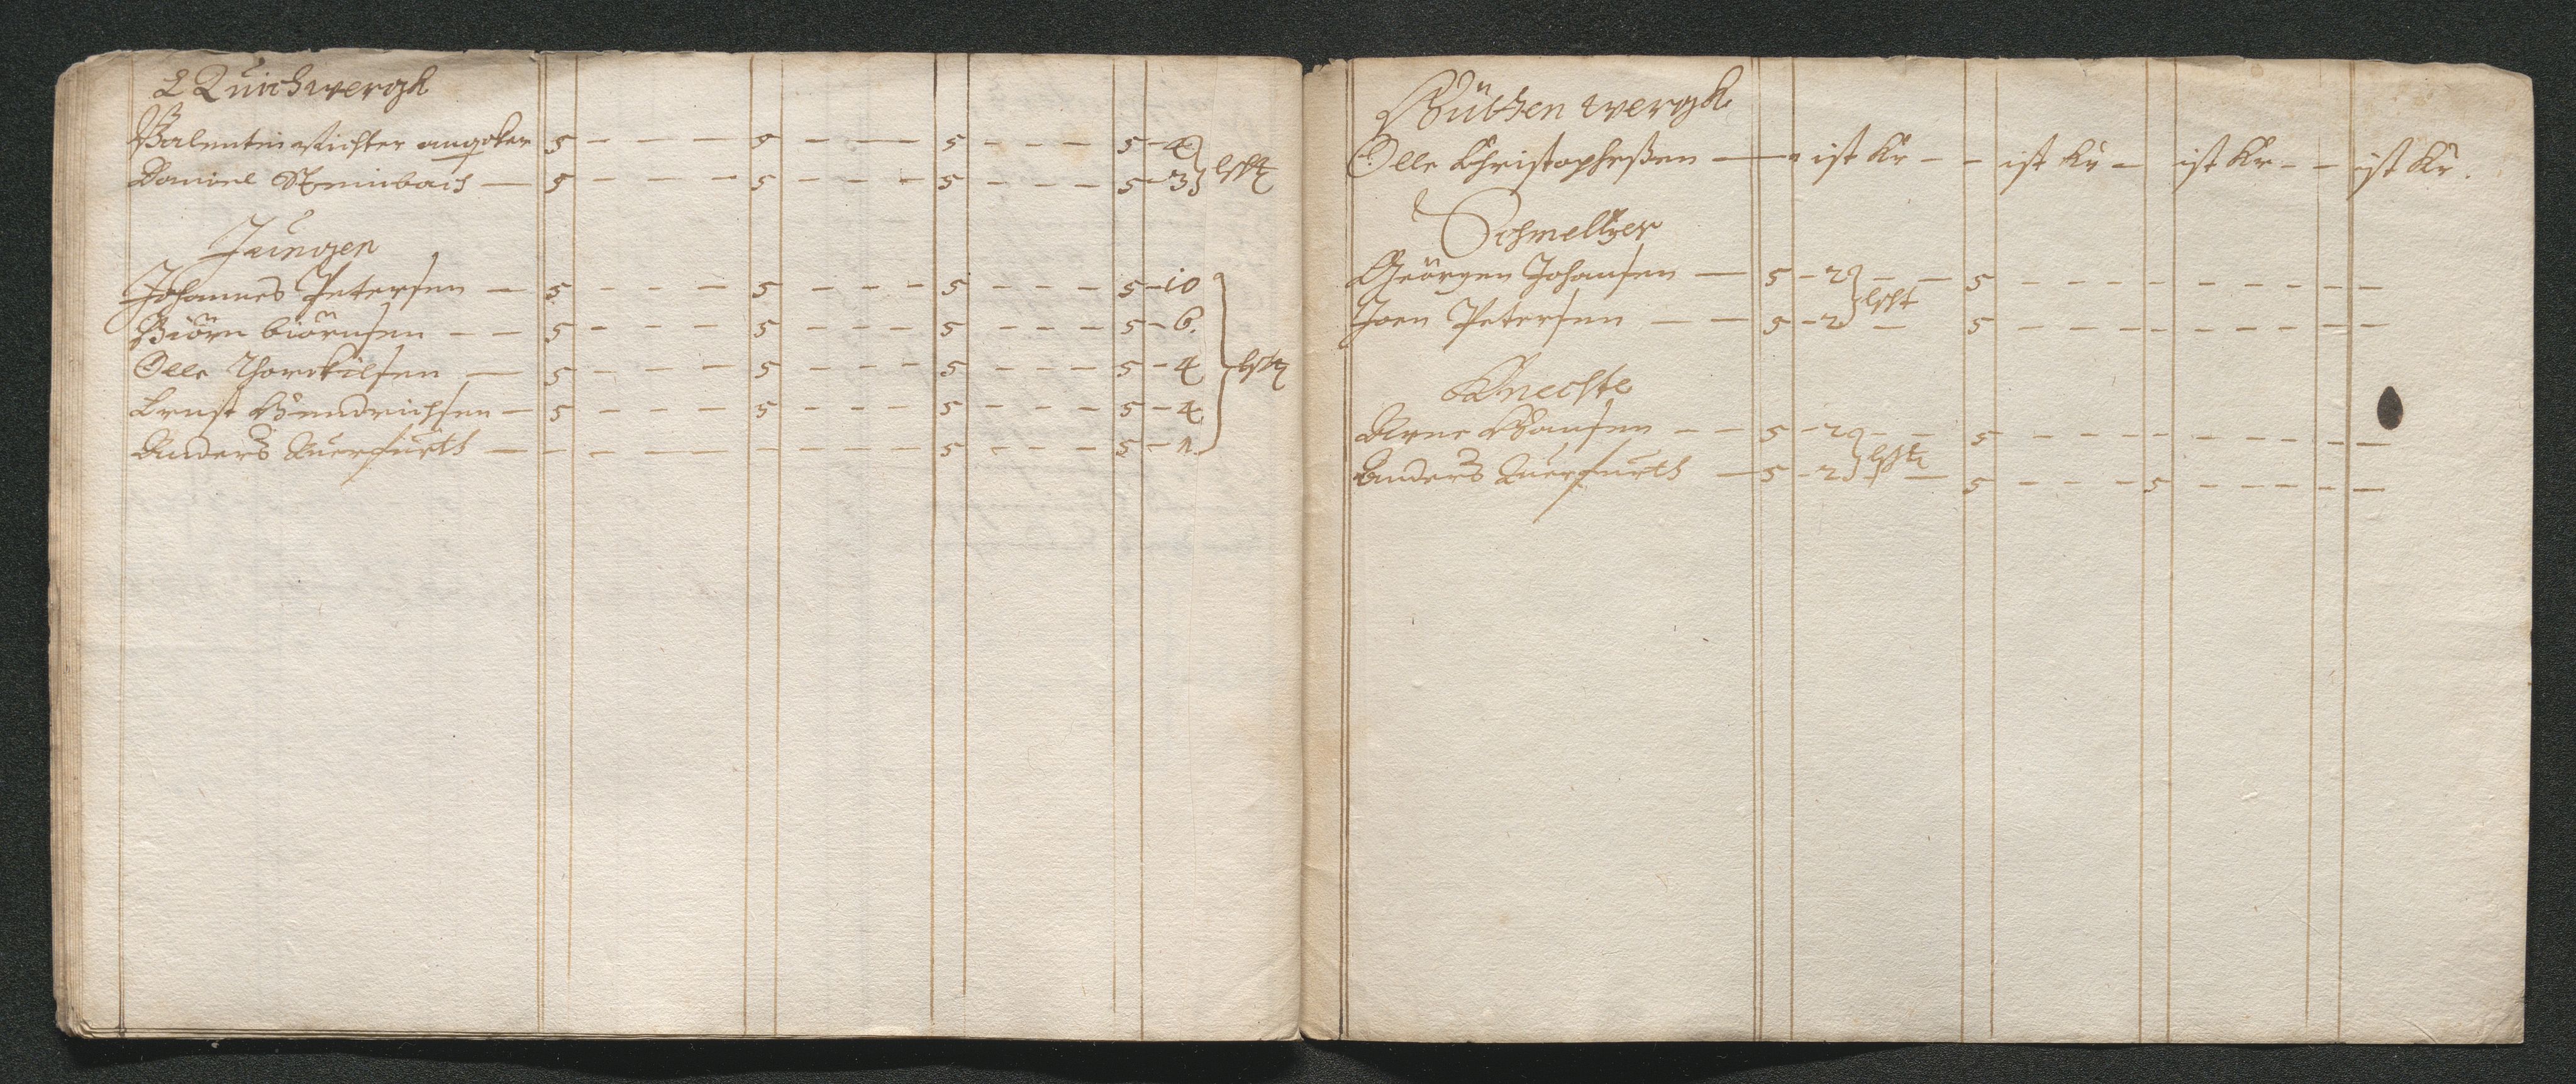 Quichwergk
Valentin Richter angeber 5 – – – 5 – – – 5 – – – 5 – 4
Daniel Steinbach – 5 – – – 5 – – – 5 – – – 5 – 3 lßt
Jungen
Johannes Petersen – 5 – – – 5 – – – 5 – – – 5 – 10
Biörn biörnsen – – 5 – – – 5 – – – 5 – – – 5 – 6.
Olle Thorckilsen – 5 – – – 5 – – – 5 – – – 5 – 4 lßt
Ernst Hendrichsen – 5 – – – 5 – – – 5 – – – 5 – 4
Anders Querfurth – – – – – – – – 5 – – – 5 – 1.
Hütten wergk
Olle Christophersen – ist Kr – – ist Kr – ist Kr – – ist Kr.
Schmeltzer
Geörgen Johansen – 5 – 2 – – 5 – – – – – – – – –
Joen Petersen – – 5 – 2 lßt – 5 – – – – – – – – –
Knechte
Arne Hansen – – 5 – 2 – – 5 – – – – – – – – –
Anders Querfurth – 5 – 2 lßt – – 5 – – – 5 – – – – –